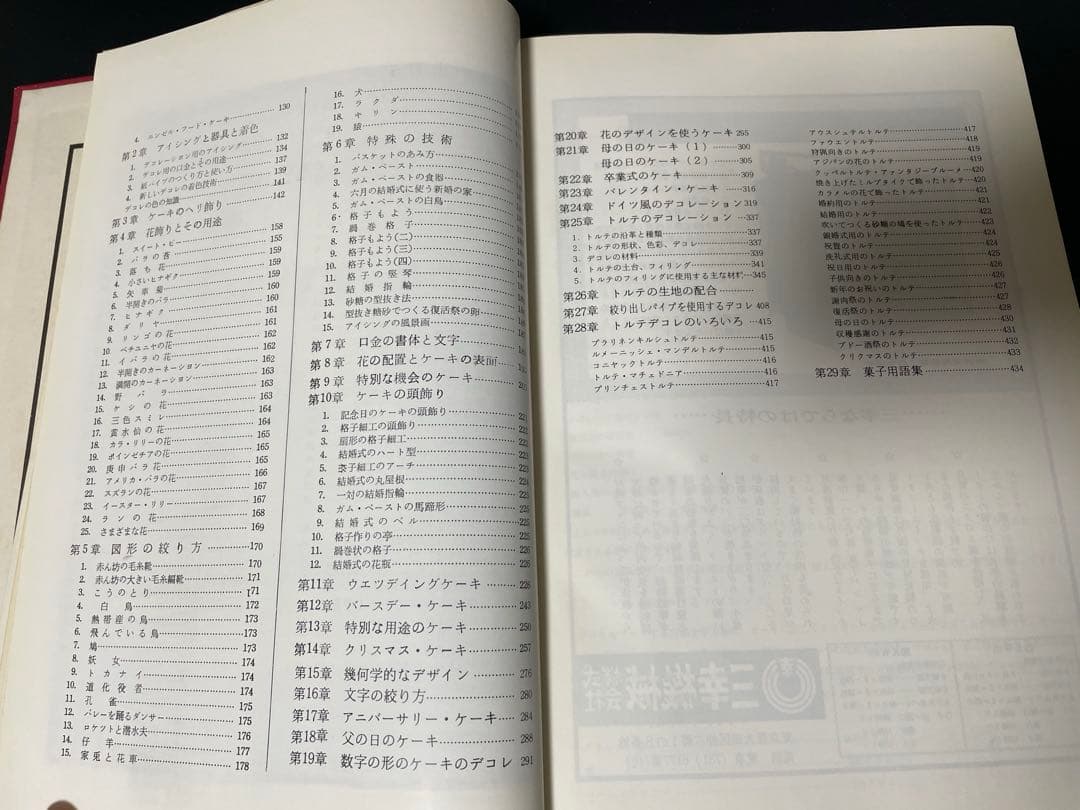 4. エンゼル・フード・ケーキ 130
第2章 アイシングと器具と着色
1. デコレーション用のアイシング 132
2. デコレ用の口金とその用途 134
3. 紙パイプのつくり方と使い方 137
4. 新しいデコレの着色技術 139
デコレの色の知識 141
第3章 ケーキのヘリ飾り 142
第4章 花飾りとその用途
1. スイート・ピー 158
2. バラの蕾 155
3. 落ち花 159
4. 小さいヒナギク 159
5. 矢車菊 159
6. 半開きのバラ 160
7. ヒナギク 160
8. ダリヤ 161
9. リンゴの花 161
10. ペチュニヤの花 162
11. イバラの花 162
12. 半開きのカーネーション 162
13. 満開のカーネーション 163
14. 野バラ 163
15. ケシの花 163
16. 三色スミレ 164
17. 黄水仙の花 164
18. カラ・リリーの花 165
19. ポインゼチアの花 165
20. 庚申バラ花 165
21. アメリカ・バラの花 166
22. スズランの花 167
23. イースター・リリー 167
24. ランの花 168
25. さまざまな花 169
第5章 図形の絞り方 170
1. 赤ん坊の毛糸靴 170
2. 赤ん坊の大きい毛糸編靴 171
3. こうのとり 171
4. 白鳥 172
5. 熱帯産の鳥 173
6. 飛んでいる鳥 173
7. 鳩 173
8. 妖女 174
9. トカナイ 174
10. 道化役者 174
11. 孔雀 175
12. バレーを踊るダンサー 175
13. ロケツトと潜水夫 176
14. 仔羊 177
15. 家兎と花車 178
16. 犬
17. ラクダ
18. キリン
19. 猿
第6章 特殊の技術
1. バスケットのあみ方
2. ガム・ペースト
3. ガム・ペーストの食器
4. 六月の結婚式に使う新婚の家
5. ガム・ペーストの白鳥
6. 格子もよう
7. 渦巻格子
8. 格子もよう(二)
9. 格子もよう(三)
10. 格子もよう(四)
11. 格子の竪琴
12. 結婚指輪
13. 砂糖の型抜き法
14. 型抜き糖砂でつくる復活祭の卵
15. アイシングの風景画
第7章 口金の書体と文字
第8章 花の配置とケーキの表面
第9章 特別な機会のケーキ
第10章 ケーキの頭飾り
1. 記念日のケーキの頭飾り 221
2. 格子細工の頭飾り
3. 扇形の格子細工
4. 結婚式のハート型 223
5. 格子細工のアーチ 223
6. 結婚式の丸屋根 224
7. 一対の結婚指輪 225
8. ガム・ペーストの馬蹄形 225
9. 結婚式のベル 225
10. 格子作りの亭 225
11. 渦巻状の格子 226
12. 結婚式の花瓶 226
第11章 ウエツデイングケーキ 226
第12章 バースデー・ケーキ 243
第13章 特別な用途のケーキ 250
第14章 クリスマス・ケーキ 257
第15章 幾何学的なデザイン 276
第16章 文字の絞り方 280
第17章 アニバーサリー・ケーキ 284
第18章 父の日のケーキ 288
第19章 数字の形のケーキのデコレ 291
第20章 花のデザインを使うケーキ 265
第21章 母の日のケーキ(1) 300
母の日のケーキ(2) 305
第22章 卒業式のケーキ 309
第23章 バレンタイン・ケーキ 316
第24章 ドイツ風のデコレーション 319
第25章 トルテのデコレーション 337
1. トルテの沿革と種類 337
2. トルテの形状、色彩、デコレ 337
3. デコレの材料 339
4. トルテの土台、フィリング 341
5. トルテのフィリングに使用する主な材料 345
第26章 トルテの生地の配合
第27章 絞り出しパイプを使用するデコレ 408
第28章 トルテデコレのいろいろ 415
プラリネンキルシュトルテ 415
ルメーニッシェ・マンデルトルテ 415
コニヤックトルテ 416
トルテ・マチェドニア 416
プリンチェストルテ 417
アウスシュテルトルテ 417
ファウェントルテ 418
狩猟向きのトルテ 418
アジパンの花のトルテ 419
クッペルトルテ・ファンタジーブルーメ 420
焼き上げたミルブタイクで飾ったトルテ
カラメルの花で飾ったトルテ
婚約用のトルテ
結婚用のトルテ
吹いてつくる砂糖の鳩を使ったトルテ 423
銀婚式用のトルテ 424
祝聖のトルテ
洗礼式用のトルテ
祝日用のトルテ
子供向きのトルテ 426
新年のお祝いのトルテ 426
謝肉祭のトルテ 427
復活祭のトルテ
母の日のトルテ 430
収穫感謝のトルテ 431
ブドー酒祭のトルテ 432
クリクマスのトルテ 433
第29章 菓子用語集 434